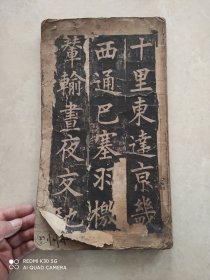 十里東達京畿
西通巴塞羽檄
輦輸晝夜交馳
REDMI K30 5G
AI QUAD CAMERA